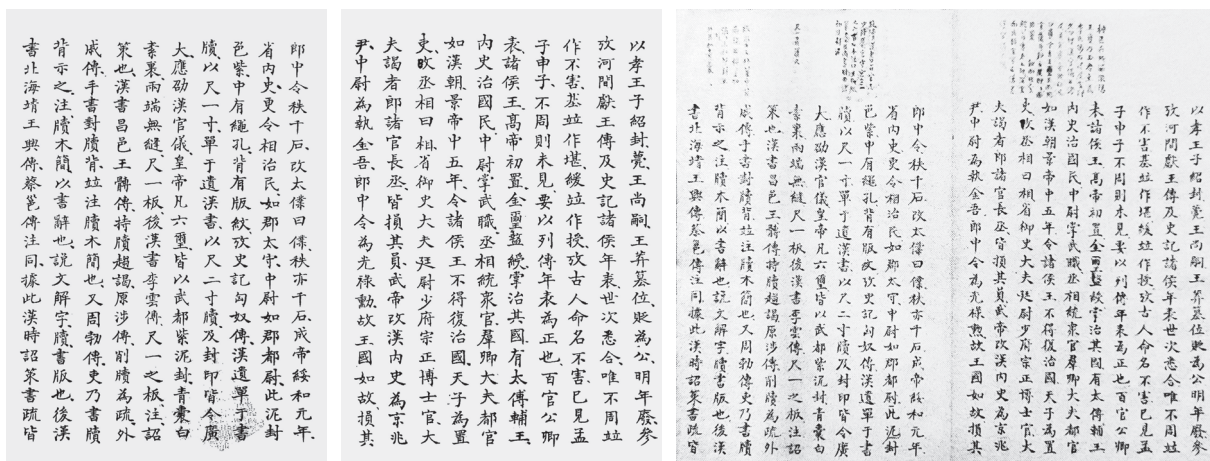 以孝王子紹封薨王尚嗣王莽墓位貶為公明年廢參
攷河閒獻王傳及史記諸侯年表世次悉合唯不周竝
作不害基竝作堪緩竝作授攷古人命名不害已見孟
子申子不周則未見要以列傳年表為正也百官公卿
表諸侯王高帝初置金璽盭綬掌治其國有太傅輔王
內史治國民中尉掌武職丞相統衆官羣卿大夫都官
如漢朝景帝中五年令諸侯王不得復治國天子為置
吏改丞相曰相省御史大夫廷尉少府宗正博士官大
夫謁者郎諸官長丞皆損其員武帝改漢內史為京兆
尹中尉為執金吾郎中令為光祿勳故王國如故損其
郎中令秩千石改太僕曰僕秩亦千石成帝綏和元年
省內史更令相治民如郡太守中尉如郡都尉此泥封
色紫中有繩孔背有版紋攷史記匈奴傳漢遺單于書
牘以尺一寸單于遺漢書以尺二寸牘及封印皆令廣
大應劭漢官儀皇帝凡六璽皆以武都紫泥封青囊白
素裏兩端無縫尺一板後漢書李雲傳尺一之板注詔
策也漢書昌邑王髆傳持牘趨謁原涉傳削牘為疏外
戚傳手書對牘背竝注牘木簡也又周勃傳吏乃書牘
背示之注牘木簡以書辭也說文解字牘書版也後漢
書北海靖王興傳蔡邕傳注同據此漢時詔策書疏皆
以孝王子紹封薨王尚嗣王莽墓位貶為公明年廢參
攷河閒獻王傳及史記諸侯年表世次悉合唯不周竝
作不害基竝作堪緩竝作授攷古人命名不害已見孟
子申子不周則未見要以列傳年表為正也百官公卿
表諸侯王高帝初置金璽盭綬掌治其國有太傅輔王
內史治國民中尉掌武職丞相統衆官羣卿大夫都官
如漢朝景帝中五年令諸侯王不得復治國天子為置
吏改丞相曰相省御史大夫廷尉少府宗正博士官大
夫謁者郎諸官長丞皆損其員武帝改漢內史為京兆
尹中尉為執金吾郎中令為光祿勳故王國如故損其
郎中令秩千石改太僕曰僕秩亦千石成帝綏和元年
省內史更令相治民如郡太守中尉如郡都尉此泥封
色紫中有繩孔背有版紋攷史記匈奴傳漢遺單于書
牘以尺一寸單于遺漢書以尺二寸牘及封印皆令廣
大應劭漢官儀皇帝凡六璽皆以武都紫泥封青囊白
素裏兩端無縫尺一板後漢書李雲傳尺一之板注詔
策也漢書昌邑王髆傳持牘趨謁原涉傳削牘為疏外
戚傳手書對牘背竝注牘木簡也又周勃傳吏乃書牘
背示之注牘木簡以書辭也說文解字牘書版也後漢
書北海靖王興傳蔡邕傳注同據此漢時詔策書疏皆